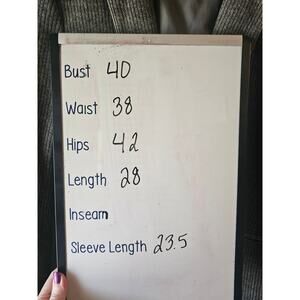 Bust 40
Waist 38
Hips 42
Length 28
Inseam
Sleeve Length 23.5